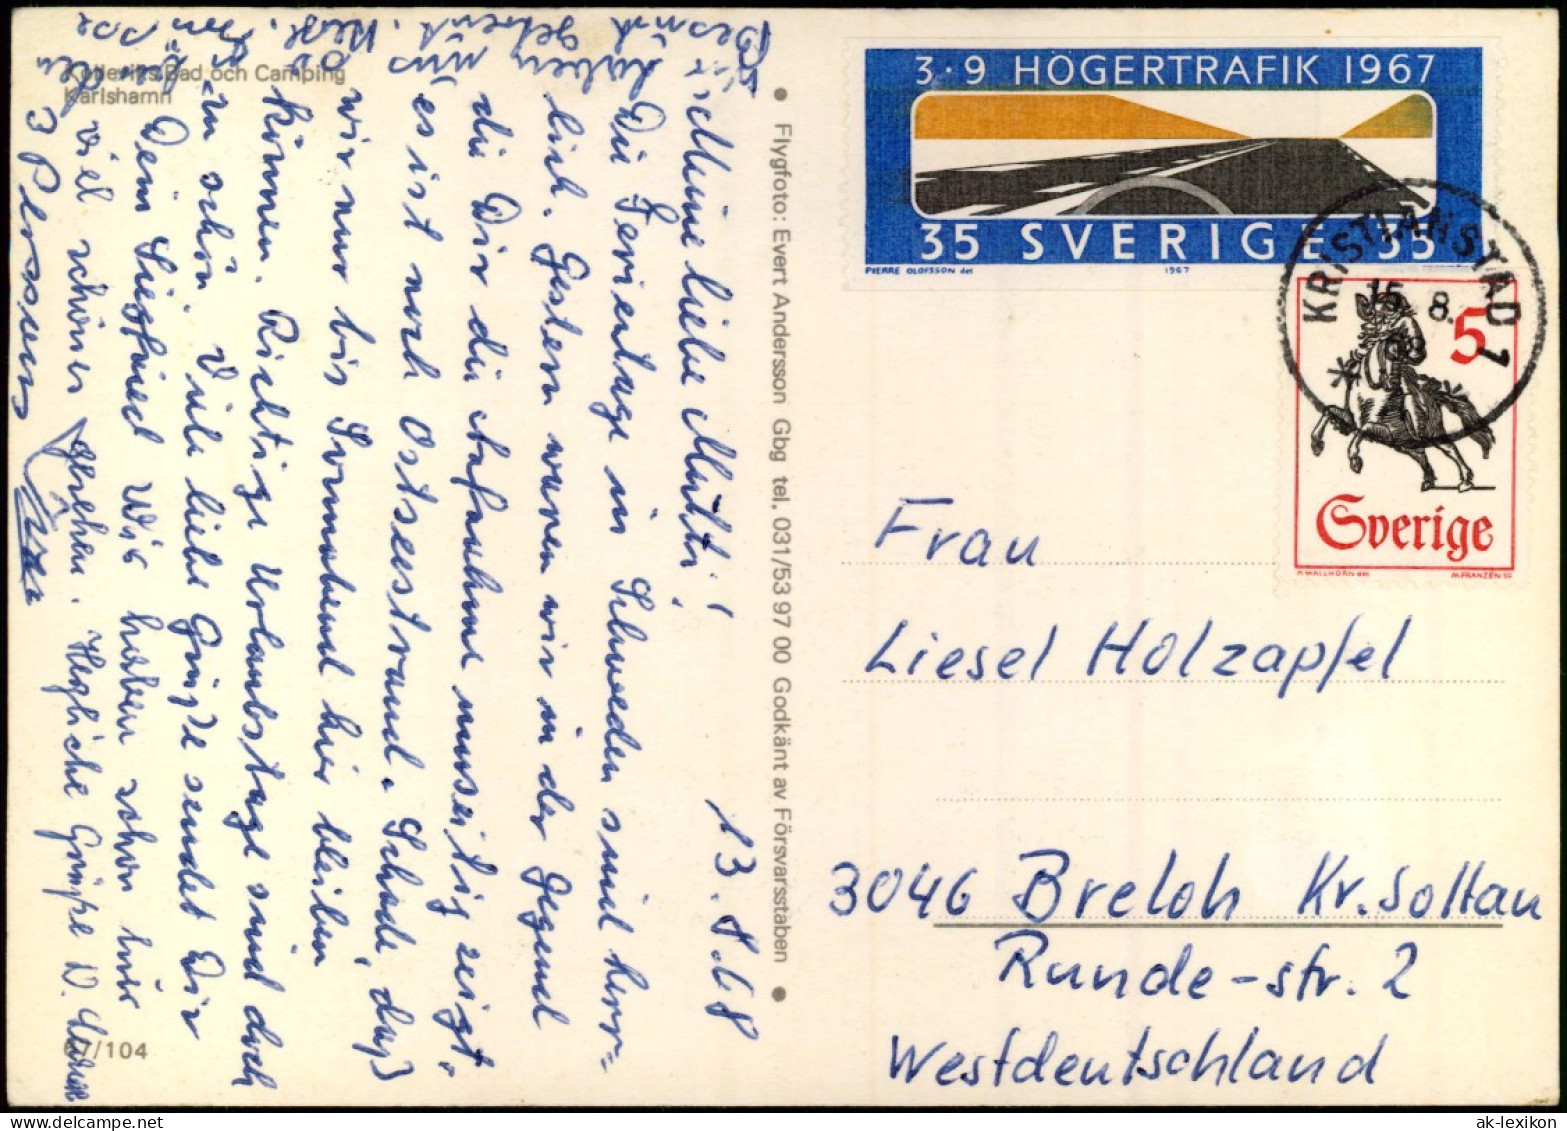 Kolleviks Bad och Camping
Karlshamn
13.8.68
Meine liebe Mutti!
Die Ferientage in Schweden sind herr=
lich. Gestern waren wir in der Gegend
die Dir die Aufnahme umseitig zeigt.
es ist noch Ostseestrand. Schade, daß
wir nur bis Sonnabend hier bleiben
können. Richtige Urlaubstage sind doch
zu schön. Viele liebe Grüße sendet Dir
Dein Siegfried Wir haben schon hier
viel schönes gesehen. Herzliche Grüße
3 Personen
67/104
● Flygfoto: Evert Andersson Gbg tel. 031/53 97 00 Godkänt av Försvarsstaben ●
3·9 HÖGERTRAFIK 1967
35 SVERIGE 35
PIERRE OLOFSSON del 1967
KRISTIANSTAD 1
15 8.
68
5
Sverige
A WALLHORN del M FRANZEN SC
Frau
Liesel Holzapfel
3046 Breloh Kr. Soltau
Runde-str. 2
Westdeutschland
ak-lexikon